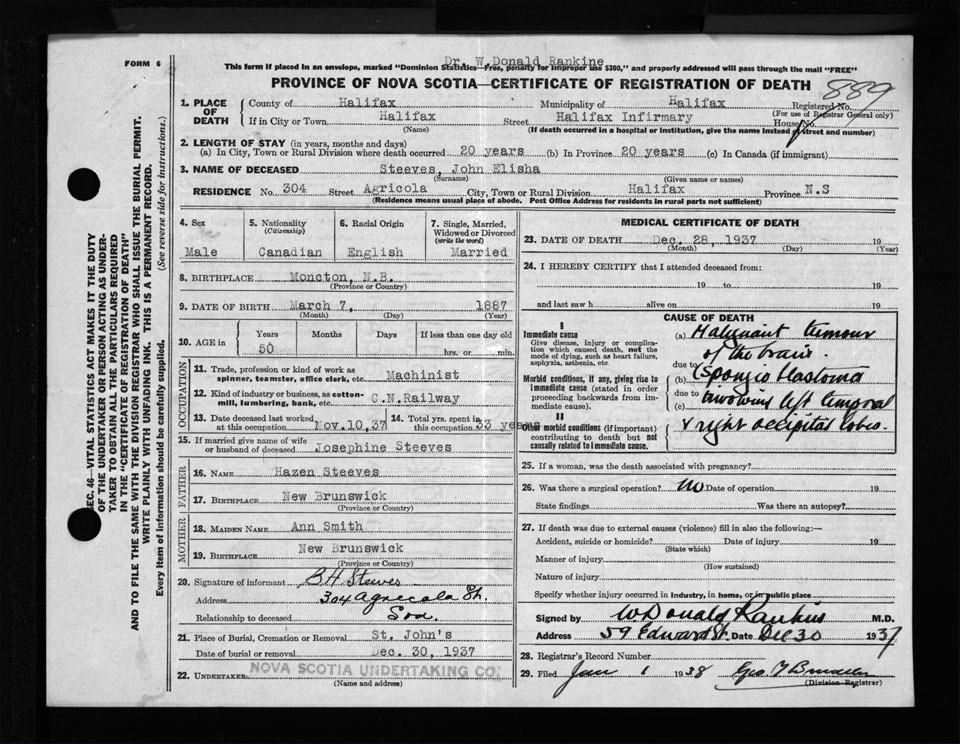 FORM 6
Dr. W. Donald Rankine
This form if placed in an envelope, marked "Dominion Statistics—Free, penalty for improper use $300," and properly addressed will pass through the mail "FREE"
PROVINCE OF NOVA SCOTIA—CERTIFICATE OF REGISTRATION OF DEATH
889
1. PLACE OF DEATH
County of Halifax Municipality of Halifax Registered No.
(For use of Registrar General only)
If in City or Town Halifax Street Halifax Infirmary House No.
(Name) (If death occurred in a hospital or institution, give the name instead of street and number)
2. LENGTH OF STAY (in years, months and days)
(a) In City, Town or Rural Division where death occurred 20 years (b) In Province 20 years (c) In Canada (if immigrant)
3. NAME OF DECEASED Steeves, John Elisha
(Surname) (Given name or names)
RESIDENCE No. 304 Street Agricola City, Town or Rural Division Halifax Province N.S
(Residence means usual place of abode. Post Office Address for residents in rural parts not sufficient)
4. Sex Male
5. Nationality (Citizenship) Canadian
6. Racial Origin English
7. Single, Married, Widowed or Divorced (write the word) Married
8. BIRTHPLACE Moncton, N.B.
(Province or Country)
9. DATE OF BIRTH March 7, 1887
(Month) (Day) (Year)
10. AGE in Years Months Days If less than one day old
50 hrs. or min.
OCCUPATION
11. Trade, profession or kind of work as spinner, teamster, office clerk, etc. Machinist
12. Kind of industry or business, as cotton-mill, lumbering, bank, etc. C.N.Railway
13. Date deceased last worked at this occupation Nov.10,37
14. Total yrs. spent in this occupation 33 years
15. If married give name of wife or husband of deceased Josephine Steeves
FATHER
16. NAME Hazen Steeves
17. BIRTHPLACE New Brunswick
(Province or Country)
MOTHER
18. MAIDEN NAME Ann Smith
19. BIRTHPLACE New Brunswick
(Province or Country)
20. Signature of informant B H Steeves
Address 304 Agricola St.
Relationship to deceased Son.
21. Place of Burial, Cremation or Removal St. John's
Date of burial or removal Dec. 30, 1937
22. UNDERTAKER NOVA SCOTIA UNDERTAKING CO.
(Name and address)
MEDICAL CERTIFICATE OF DEATH
23. DATE OF DEATH Dec. 28, 1937 19
(Month) (Day) (Year)
24. I HEREBY CERTIFY that I attended deceased from:
19 to 19
and last saw h alive on 19
CAUSE OF DEATH
I
Immediate cause
Give disease, injury or complication which caused death, not the mode of dying, such as heart failure, asphyxia, asthenia, etc.
Morbid conditions, if any, giving rise to immediate cause (stated in order proceeding backwards from immediate cause).
II
Other morbid conditions (if important) contributing to death but not causally related to immediate cause.
(a) Malignant tumour
of the brain.
due to
(b) (Spongioblastoma
due to
(c) involving left temporal
& right occipital lobes.
25. If a woman, was the death associated with pregnancy?
26. Was there a surgical operation? No Date of operation 19
State findings Was there an autopsy?
27. If death was due to external causes (violence) fill in also the following:—
Accident, suicide or homicide? Date of injury 19
(State which)
Manner of injury
(How sustained)
Nature of injury
Specify whether injury occurred in industry, in home, or in public place
Signed by W Donald Rankine M.D.
Address 59 Edward St. Date Dec 30 1937
28. Registrar's Record Number
29. Filed Jan 1 1938 Geo. T
(Division Registrar)
SEC. 46—VITAL STATISTICS ACT MAKES IT THE DUTY
OF THE UNDERTAKER OR PERSON ACTING AS UNDER-
TAKER TO OBTAIN ALL THE PARTICULARS REQUIRED
IN THE "CERTIFICATE OF REGISTRATION OF DEATH"
AND TO FILE THE SAME WITH THE DIVISION REGISTRAR WHO SHALL ISSUE THE BURIAL PERMIT.
WRITE PLAINLY WITH UNFADING INK. THIS IS A PERMANENT RECORD.
Every item of information should be carefully supplied. (See reverse side for instructions.)